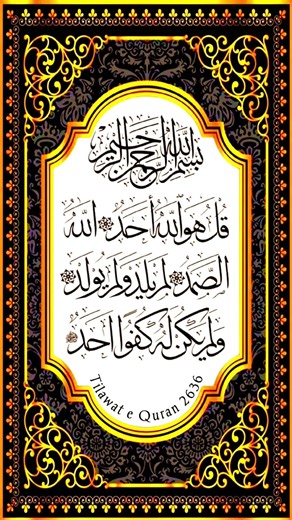 بِسْمِ اللهِ الرَّحْمٰنِ الرَّحِيْمِ
قُلْ هُوَ اللهُ أَحَدٌ اللهُ
الصَّمَدُ لَمْ يَلِدْ وَلَمْ يُوْلَدْ
وَلَمْ يَكُنْ لَّهٗ كُفُوًا اَحَدٌ
Tilawat e Quran 2636